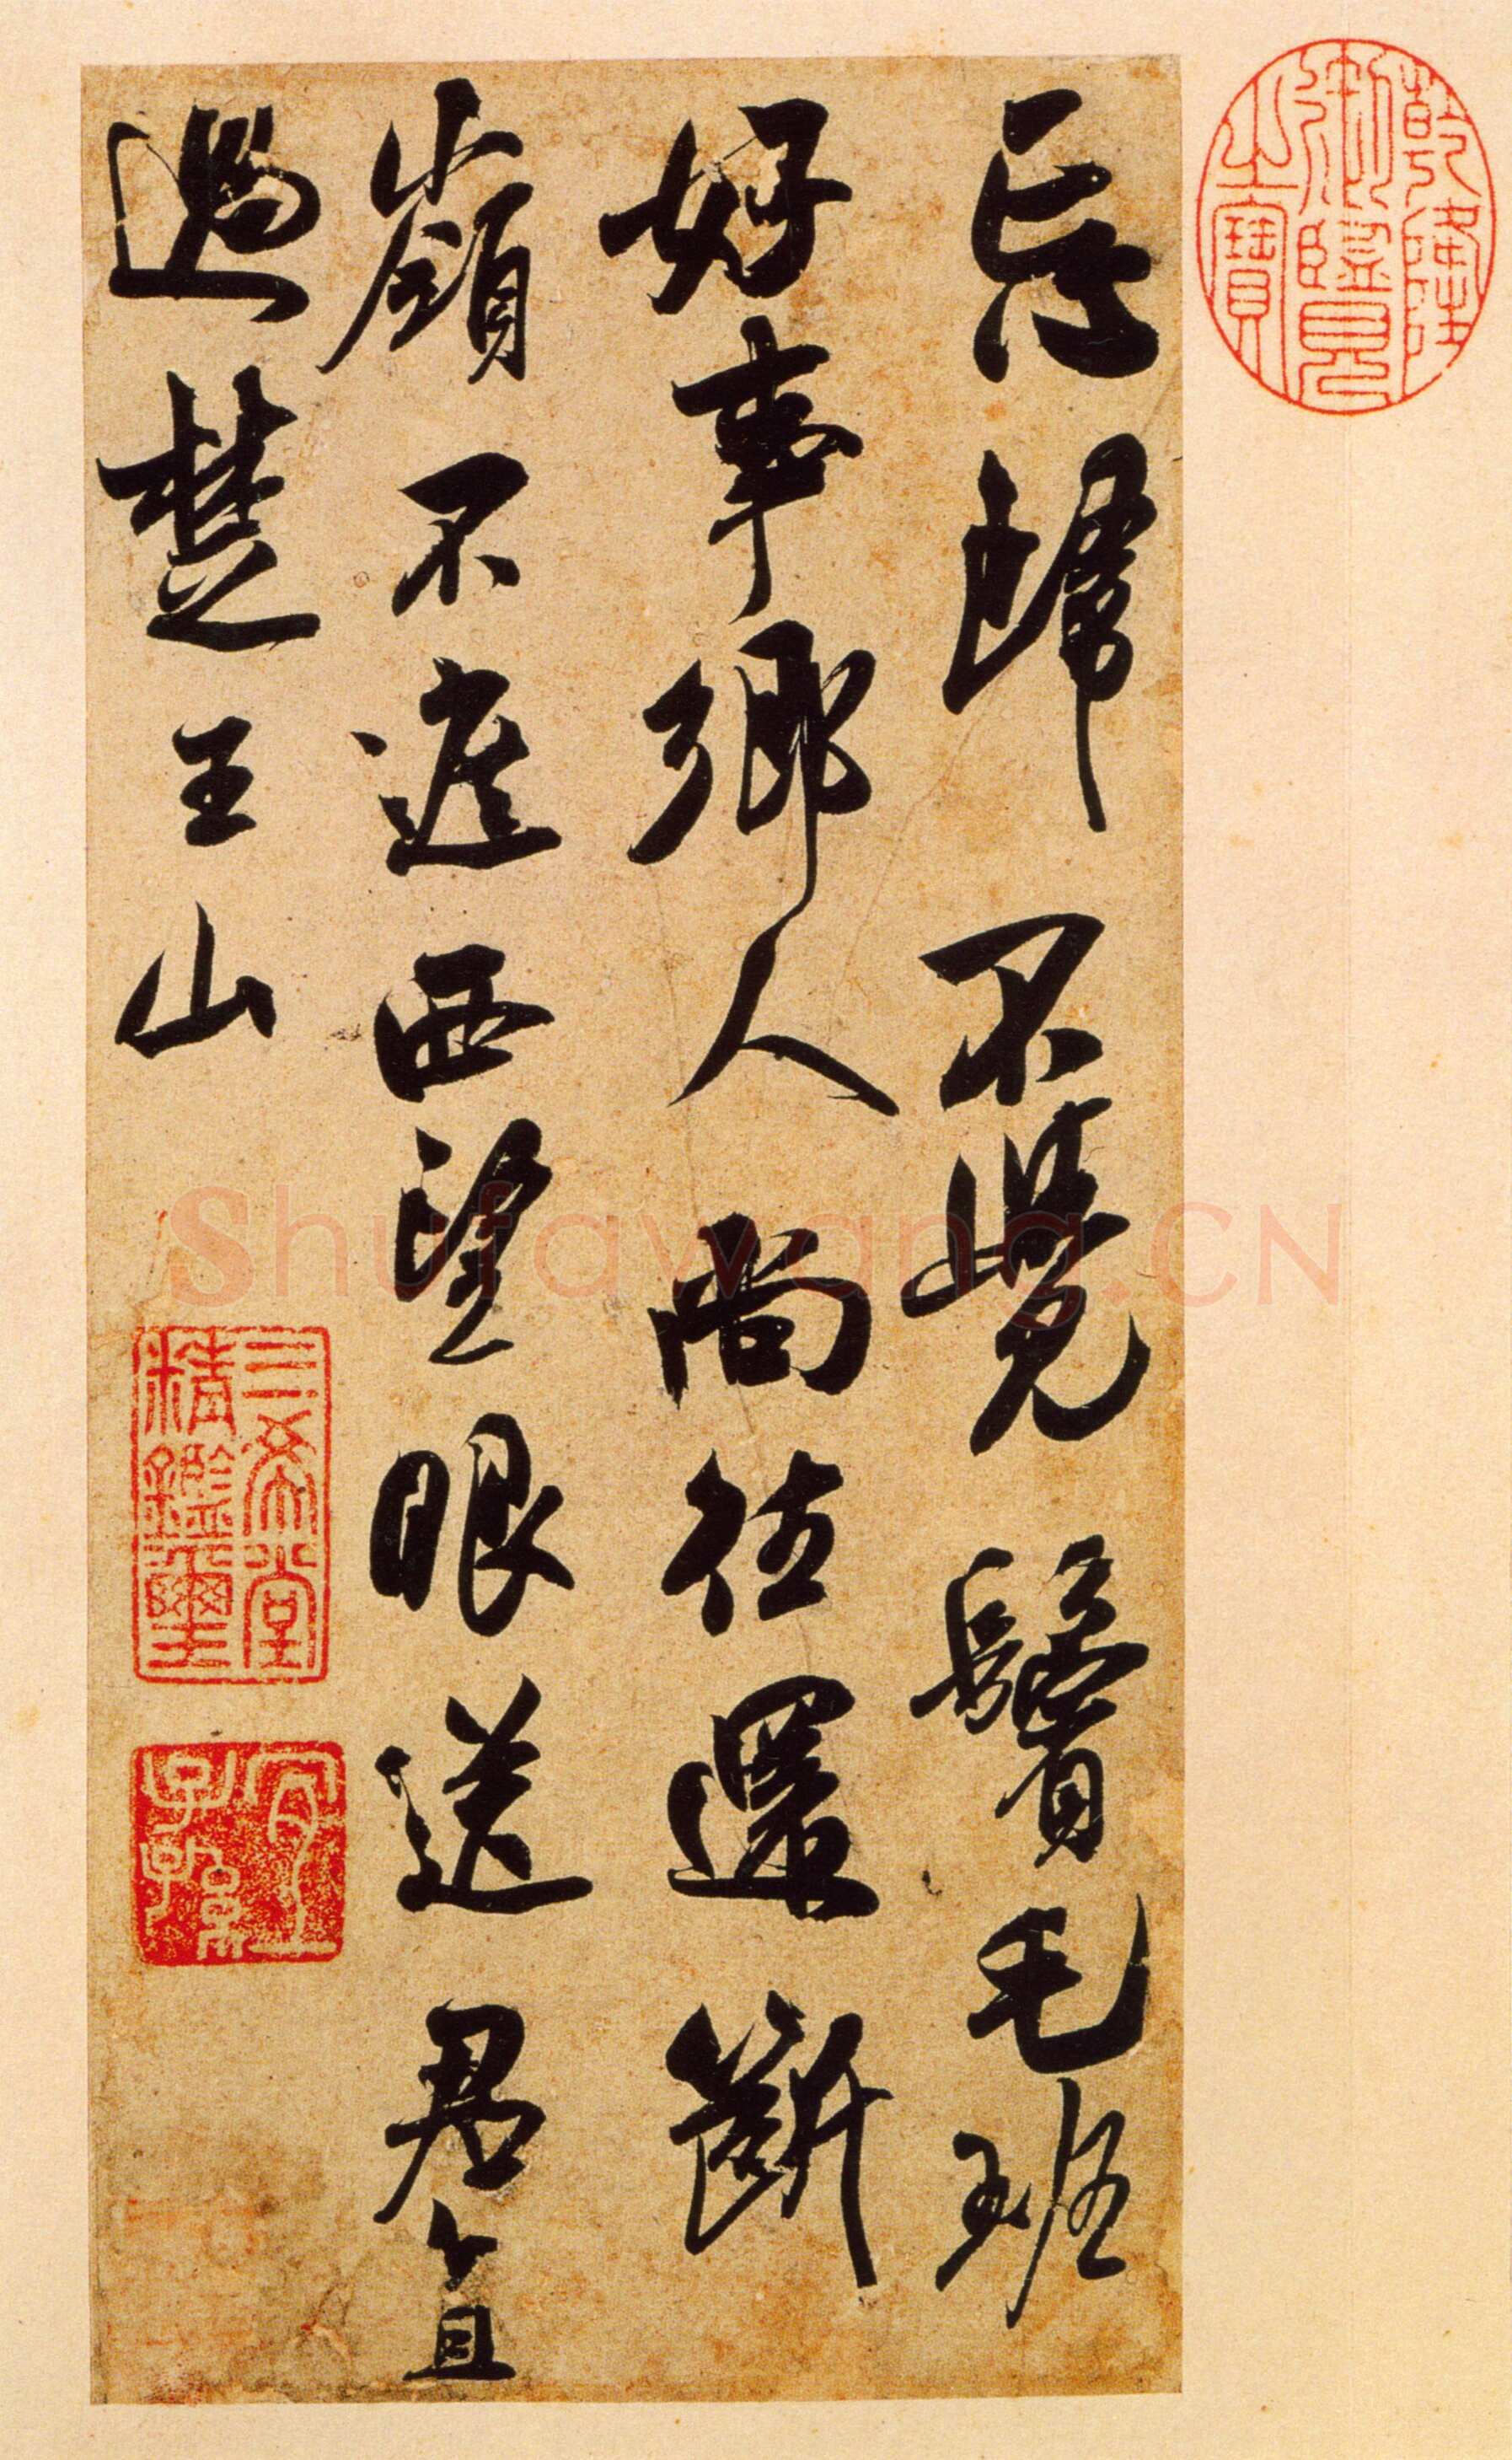 乾隆御覽之寶
忘歸不覺鬢毛班
好事鄉人尚往還斷
嶺不遮西望眼送君直
過楚王山
三希堂精鑑璽
宜子孫
Shufawang.CN